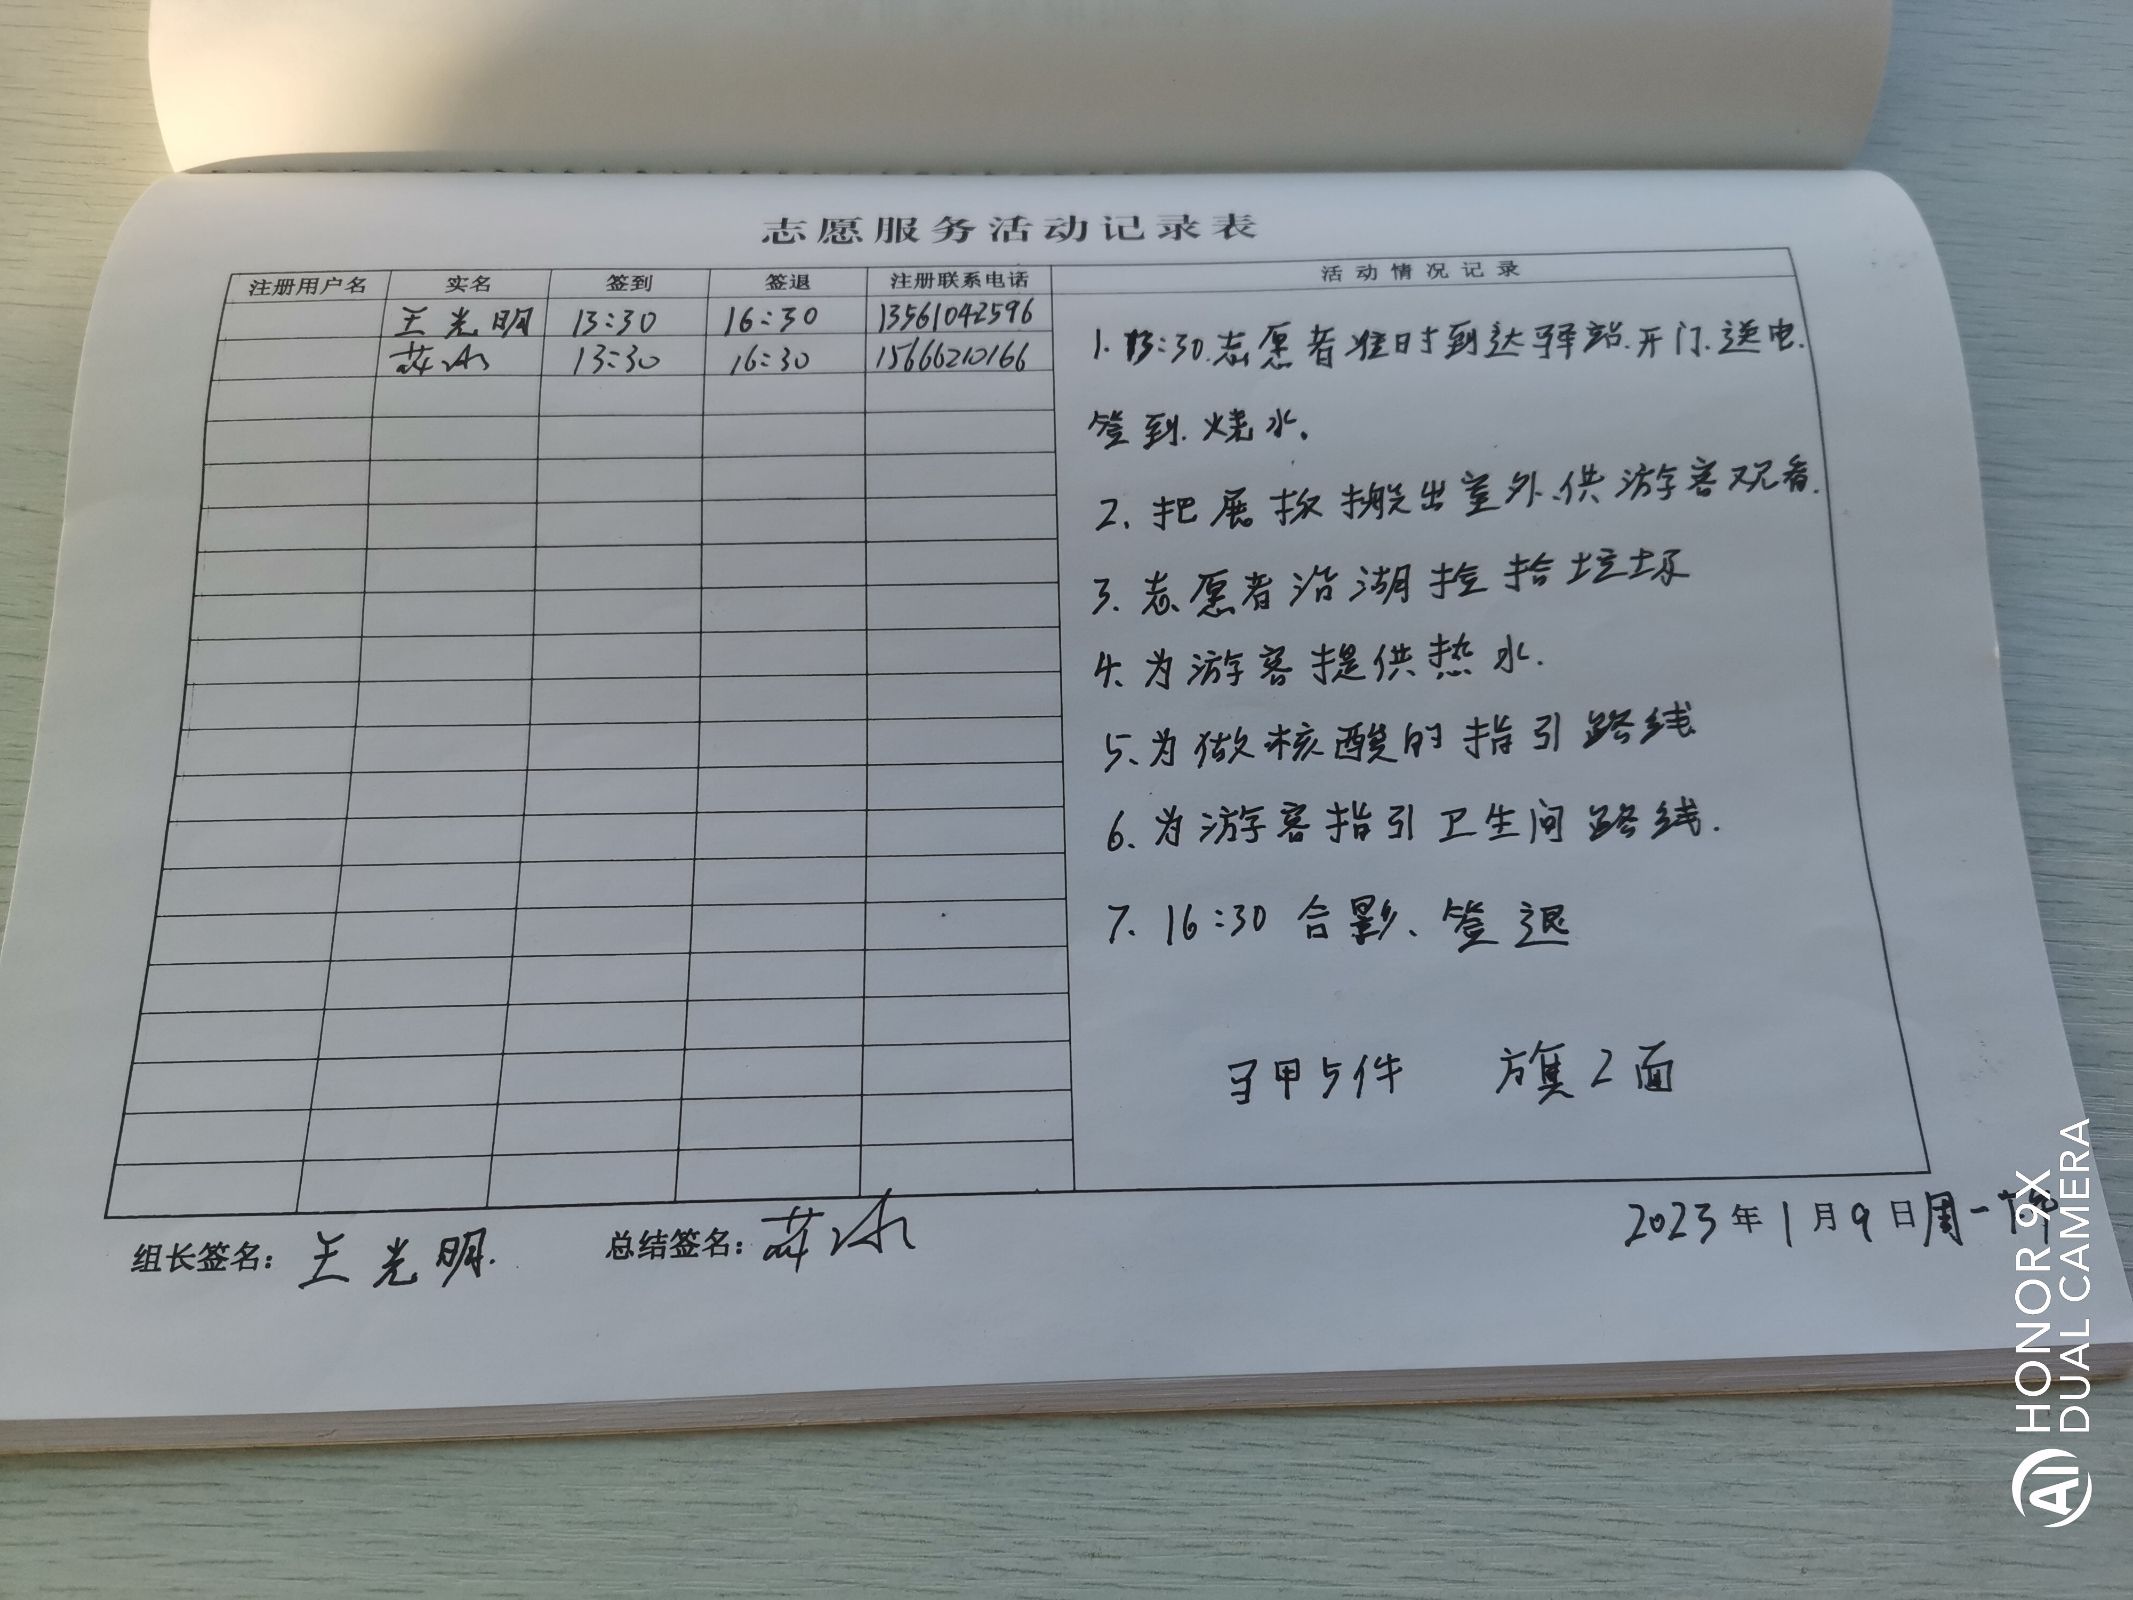 志愿服务活动记录表
注册用户名 实名 签到 签退 注册联系电话 活动情况记录
王光明 13:30 16:30 13561042596
13:30 16:30 15666210166
1. 13:30.志愿者准时到达驿站.开门.送电.
签到.烧水.
2、把展板搬出室外、供游客观看.
3、志愿者沿湖捡拾垃圾
4、为游客提供热水.
5、为做核酸的指引路线
6、为游客指引卫生间路线.
7. 16:30 合影、签退
马甲5件 旗2面
组长签名：王光明.
总结签名：
2023年1月9日周一下午
HONOR 9X
DUAL CAMERA
AI